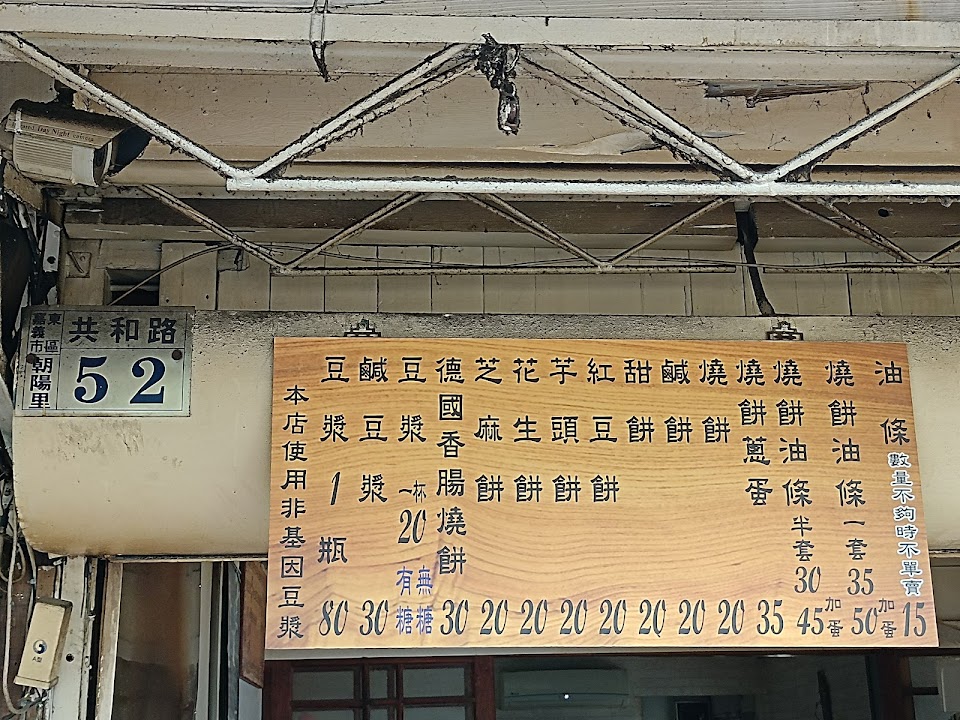 嘉義市東區
朝陽里
共和路
52
油條 數量不夠時不單賣 15
燒餅油條一套 35 加蛋 50
燒餅油條半套 30 加蛋 45
燒餅蔥蛋 35
燒餅 20
鹹餅 20
甜餅 20
紅豆餅 20
芋頭餅 20
花生餅 20
芝麻餅 20
德國香腸燒餅 30
豆漿 一杯 20 無糖 有糖
鹹豆漿 30
豆漿1瓶 80
本店使用非基因豆漿
A型